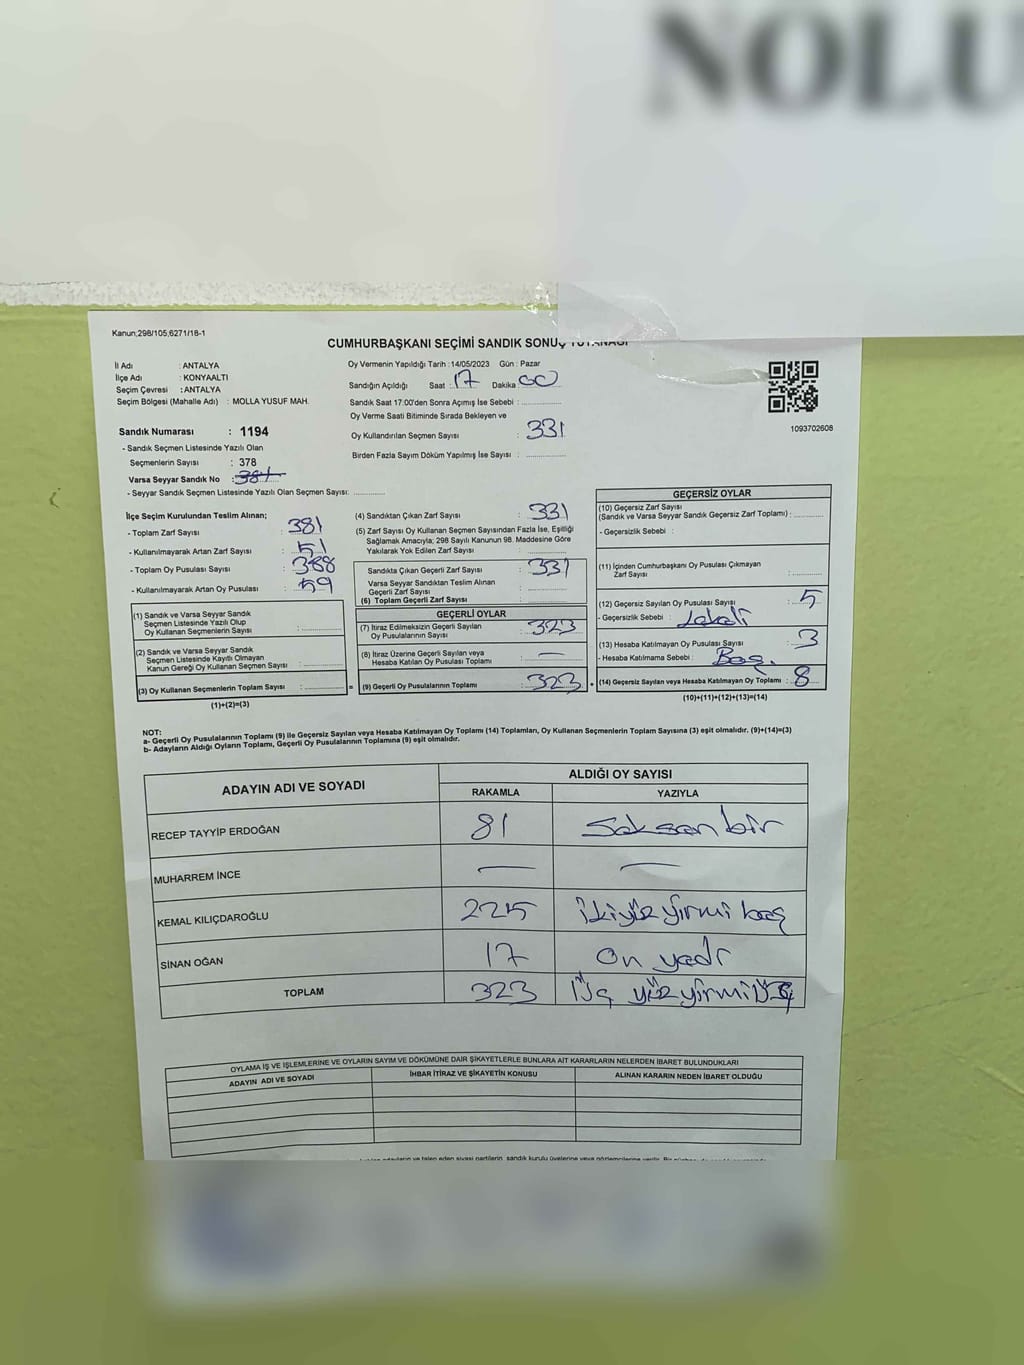 NOLU
Kanun;298/105,6271/18-1
CUMHURBAŞKANI SEÇİMİ SANDIK SONUÇ TUTANAĞI
İl Adı : ANTALYA
İlçe Adı : KONYAALTI
Seçim Çevresi : ANTALYA
Seçim Bölgesi (Mahalle Adı) : MOLLA YUSUF MAH.
Oy Vermenin Yapıldığı Tarih :14/05/2023 Gün : Pazar
Sandığın Açıldığı Saat : 17 Dakika 00
Sandık Saat 17:00'den Sonra Açımış İse Sebebi :
Oy Verme Saati Bitiminde Sırada Bekleyen ve
Oy Kullandırılan Seçmen Sayısı : 331
Birden Fazla Sayım Döküm Yapılmış İse Sayısı :
1093702608
Sandık Numarası : 1194
- Sandık Seçmen Listesinde Yazılı Olan
Seçmenlerin Sayısı : 378
Varsa Seyyar Sandık No : 381
- Seyyar Sandık Seçmen Listesinde Yazılı Olan Seçmen Sayısı:
İlçe Seçim Kurulundan Teslim Alınan;
- Toplam Zarf Sayısı : 381
- Kullanılmayarak Artan Zarf Sayısı : 51
- Toplam Oy Pusulası Sayısı : 388
- Kullanılmayarak Artan Oy Pusulası : 59
(1) Sandık ve Varsa Seyyar Sandık
Seçmen Listesinde Yazılı Olup
Oy Kullanan Seçmenlerin Sayısı :
(2) Sandık ve Varsa Seyyar Sandık
Seçmen Listesinde Kayıtlı Olmayan
Kanun Gereği Oy Kullanan Seçmen Sayısı :
(3) Oy Kullanan Seçmenlerin Toplam Sayısı :
(1)+(2)=(3)
(4) Sandıktan Çıkan Zarf Sayısı : 331
(5) Zarf Sayısı Oy Kullanan Seçmen Sayısından Fazla İse, Eşitliği
Sağlamak Amacıyla; 298 Sayılı Kanunun 98. Maddesine Göre
Yakılarak Yok Edilen Zarf Sayısı :
Sandıkta Çıkan Geçerli Zarf Sayısı : 331
Varsa Seyyar Sandıktan Teslim Alınan
Geçerli Zarf Sayısı :
(6) Toplam Geçerli Zarf Sayısı :
GEÇERLİ OYLAR
(7) İtiraz Edilmeksizin Geçerli Sayılan
Oy Pusulalarının Sayısı : 323
(8) İtiraz Üzerine Geçerli Sayılan veya
Hesaba Katılan Oy Pusulası Toplamı : —
= (9) Geçerli Oy Pusulalarının Toplamı : 323 +
GEÇERSİZ OYLAR
(10) Geçersiz Zarf Sayısı
(Sandık ve Varsa Seyyar Sandık Geçersiz Zarf Toplamı) :
- Geçersizlik Sebebi :
(11) İçinden Cumhurbaşkanı Oy Pusulası Çıkmayan
Zarf Sayısı :
(12) Geçersiz Sayılan Oy Pusulası Sayısı : 5
- Geçersizlik Sebebi : Lekeli
(13) Hesaba Katılmayan Oy Pusulası Sayısı : 3
- Hesaba Katılmama Sebebi : Boş.
(14) Geçersiz Sayılan veya Hesaba Katılmayan Oy Toplamı : 8
(10)+(11)+(12)+(13)=(14)
NOT:
a- Geçerli Oy Pusulalarının Toplamı (9) ile Geçersiz Sayılan veya Hesaba Katılmayan Oy Toplamı (14) Toplamları, Oy Kullanan Seçmenlerin Toplam Sayısına (3) eşit olmalıdır. (9)+(14)=(3)
b- Adayların Aldığı Oyların Toplamı, Geçerli Oy Pusulalarının Toplamına (9) eşit olmalıdır.
ADAYIN ADI VE SOYADI ALDIĞI OY SAYISI
RAKAMLA YAZIYLA
RECEP TAYYİP ERDOĞAN 81 Seksen bir
MUHARREM İNCE — —
KEMAL KILIÇDAROĞLU 225 ikiyüz yirmi beş
SİNAN OĞAN 17 On yedi
TOPLAM 323 Üç yüz yirmi üç
OYLAMA İŞ VE İŞLEMLERİNE VE OYLARIN SAYIM VE DÖKÜMÜNE DAİR ŞİKAYETLERLE BUNLARA AİT KARARLARIN NELERDEN İBARET BULUNDUKLARI
ADAYIN ADI VE SOYADI İHBAR İTİRAZ VE ŞİKAYETİN KONUSU ALINAN KARARIN NEDEN İBARET OLDUĞU
adayların ve talep eden siyasi partilerin sandık kurulu üyelerine veya gözlemcilerine verilir.